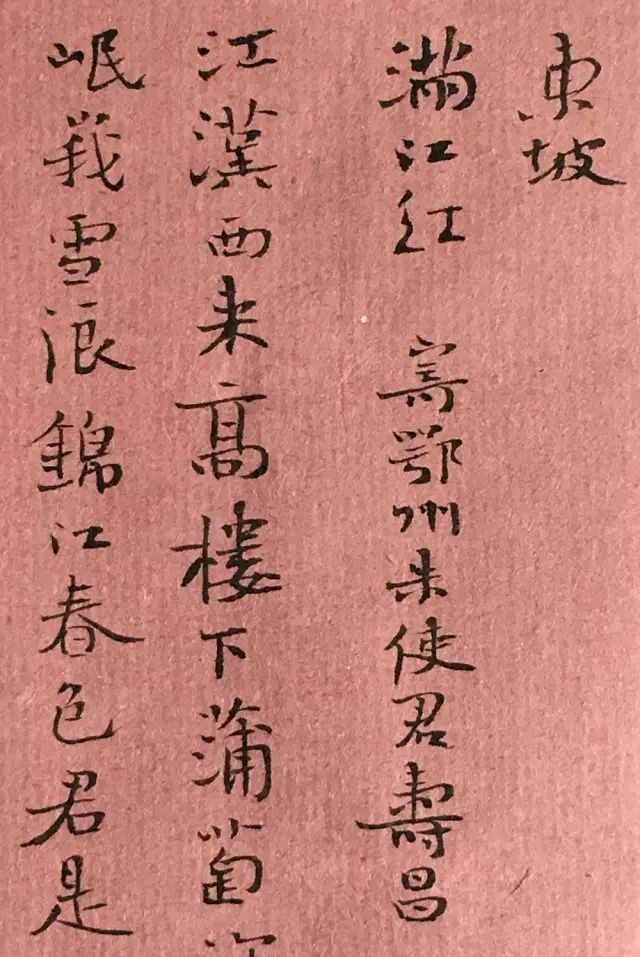 東坡
滿江紅　寄鄂州朱使君壽昌
江漢西来髙樓下蒲萄
岷峩雪浪錦江春色君是